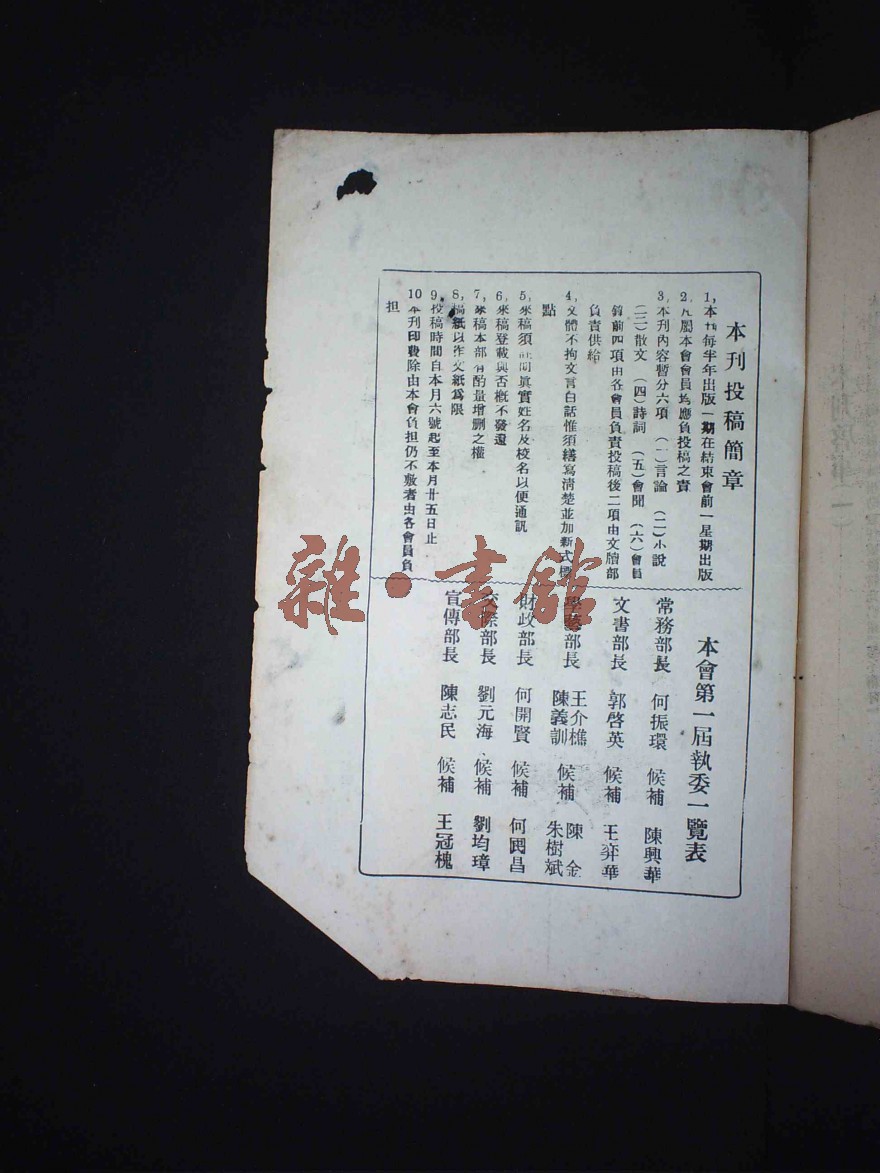 本刊投稿簡章
1,本刊每半年出版一期在結束會前一星期出版
2,凡屬本會會員均應負投稿之責
3,本刊內容暫分六項 (一)言論 (二)小說
(三)散文 (四)詩詞 (五)會聞 (六)會員
錄前四項由各會員負責投稿後二項由文牘部
負責供給
4,文體不拘文言白話惟須繕寫清楚並加新式標
點
5,來稿須註開眞實姓名及校名以便通訊
6,來稿登載與否槪不發還
7,來稿本部有酌量增删之權
8,稿紙以作文紙爲限
9,投稿時間自本月六號起至本月廿五日止
10 本刊印費除由本會負担仍不敷者由各會員負
担
本會第一屆執委一覽表
常務部長 何振環 候補 陳興華
文書部長 郭啓英 候補 王弈華
學藝部長 王介樵 陳義訓 候補 陳金 朱樹斌
財政部長 何開賢 候補 何國昌
交際部長 劉元海 候補 劉均璋
宣傳部長 陳志民 候補 王冠槐
雜·書館